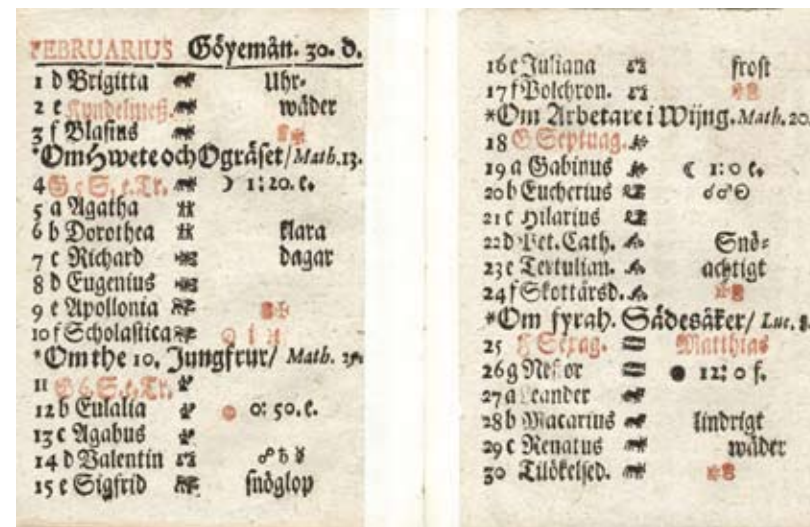 FEBRUARIUS Göyemån. 30. d.
1 d Brigitta Uhr-
2 e Kyndelmeß. wäder
3 f Blasius
*Om Hwete och Ogräset/ Math. 13.
4 G 5. e. Tr. ☽ 1: 20. e.
5 a Agatha
6 b Dorothea klara
7 c Richard dagar
8 d Eugenius
9 e Apollonia
10 f Scholastica
*Om the 10. Jungfrur/ Math. 25.
11 G 6. S. e. Tr.
12 b Eulalia 0: 50. e.
13 c Agabus
14 d Valentin ☍ ♄ ☿
15 e Sigfrid snöglop
16 e Juliana frost
17 f Polchron.
*Om Arbetare i Wijng. Math. 20.
18 G Septuag.
19 a Gabinus ☾ 1: 0 e.
20 b Eucherius ☌ ♂ ☉
21 c Hilarius
22 d Pet. Cath. Snö-
23 e Tertulian. achtigt
24 f Skottårsd.
*Om fyrah. Sädesåker/ Luc. 8.
25 Sexag. Matthias
26 g Nestor ● 12: 0 f.
27 a Leander
28 b Macarius lindrigt
29 c Renatus wäder
30 Tilökelsed.